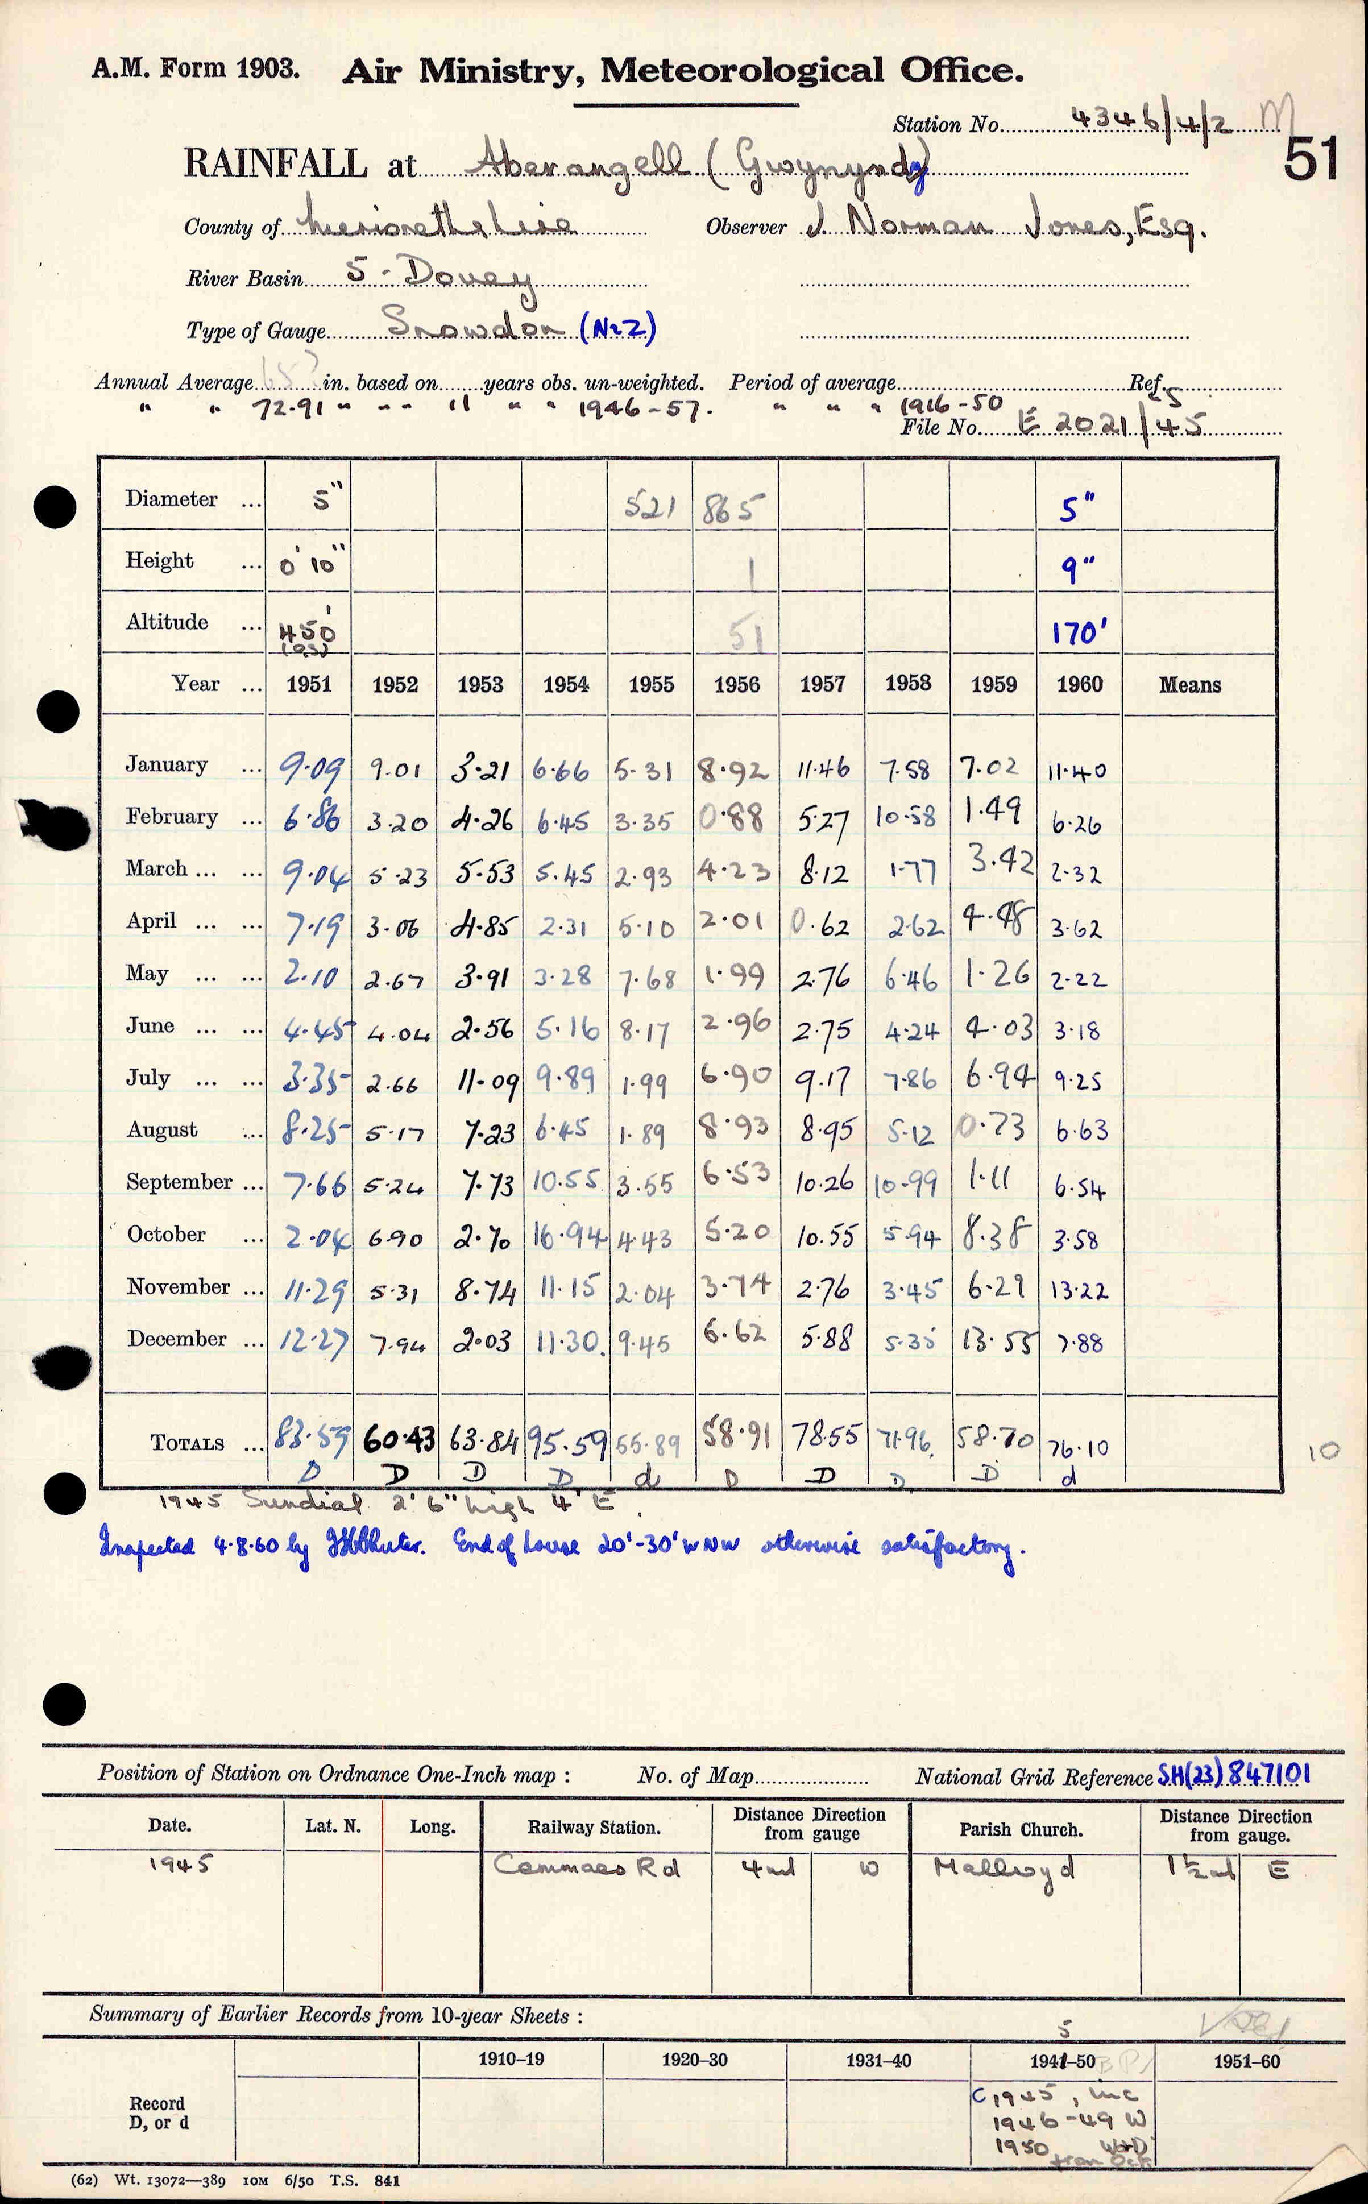 A.M. Form 1903. Air Ministry, Meteorological Office.
Station No. 4346/4/2 M
51
RAINFALL at Aberangell (Gwynyndy)
County of Merionethshire Observer J. Norman Jones, Esq.
River Basin 5 - Dovey
Type of Gauge Snowdon (Nr2)
Annual Average 65? in. based on years obs. un-weighted. Period of average Ref.
" " 72.91 " " " 11 " " " 1946-57. " " " 1916-50
File No. E 2021/45
Diameter ... 5" 521 865 5"
Height ... 0' 10" 1 9"
Altitude ... 450' 51 170'
Year ... 1951 1952 1953 1954 1955 1956 1957 1958 1959 1960 Means
January ... 9.09 9.01 3.21 6.66 5.31 8.92 11.46 7.58 7.02 11.40
February ... 6.86 3.20 4.26 6.45 3.35 0.88 5.27 10.58 1.49 6.26
March ... ... 9.04 5.23 5.53 5.45 2.93 4.23 8.12 1.77 3.42 2.32
April ... ... 7.19 3.06 4.85 2.31 5.10 2.01 0.62 2.62 4.48 3.62
May ... ... 2.10 2.67 3.91 3.28 7.68 1.99 2.76 6.46 1.26 2.22
June ... ... 4.45 4.04 2.56 5.16 8.17 2.96 2.75 4.24 4.03 3.18
July ... ... 3.35 2.66 11.09 9.89 1.99 6.90 9.17 7.86 6.94 9.25
August ... 8.25 5.17 7.23 6.45 1.89 8.93 8.95 5.12 0.73 6.63
September ... 7.66 5.24 7.73 10.55 3.55 6.53 10.26 10.99 1.11 6.54
October ... 2.04 6.90 2.70 16.94 4.43 5.20 10.55 5.94 8.38 3.58
November ... 11.29 5.31 8.74 11.15 2.04 3.74 2.76 3.45 6.29 13.22
December ... 12.27 7.94 2.03 11.30 9.45 6.62 5.88 5.35 13.55 7.88
TOTALS ... 83.59 60.43 63.84 95.59 55.89 58.91 78.55 71.96 58.70 76.10
D D D D d D D D D d
10
1945 Sundial 2' 6" high 4' E.
Inspected 4.8.60 by End of house 20'-30' WNW otherwise satisfactory.
Position of Station on Ordnance One-Inch map : No. of Map National Grid Reference SH(23) 847101
Date. Lat. N. Long. Railway Station. Distance Direction from gauge Parish Church. Distance Direction from gauge.
1945 Cemmaes Rd 4ml W Mallwyd 1½ml E
Summary of Earlier Records from 10-year Sheets :
5
1910-19 1920-30 1931-40 1941-50 1951-60
Record
D, or d
C 1945, inc
1946-49 W
1950 W+D
from Oct
(62) Wt. 13072—389 10M 6/50 T.S. 841